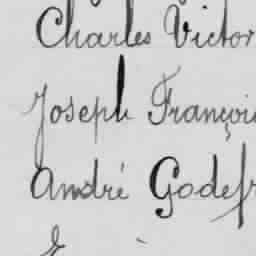 Charles Victor
Joseph Françoi
André Godefr